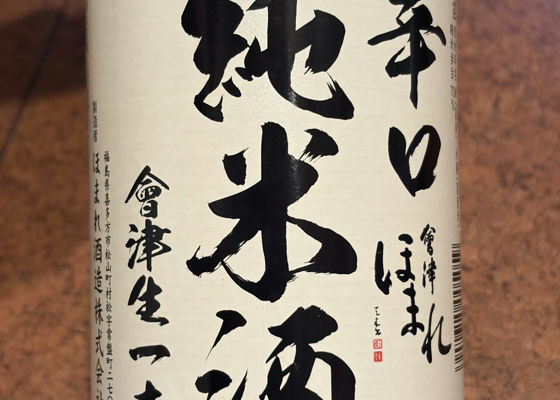 辛口
會津
ほまれ
純米酒
會津生一
福島県喜多方市松山町村松字常盤町二七〇
製造者
ほまれ酒造株式会社